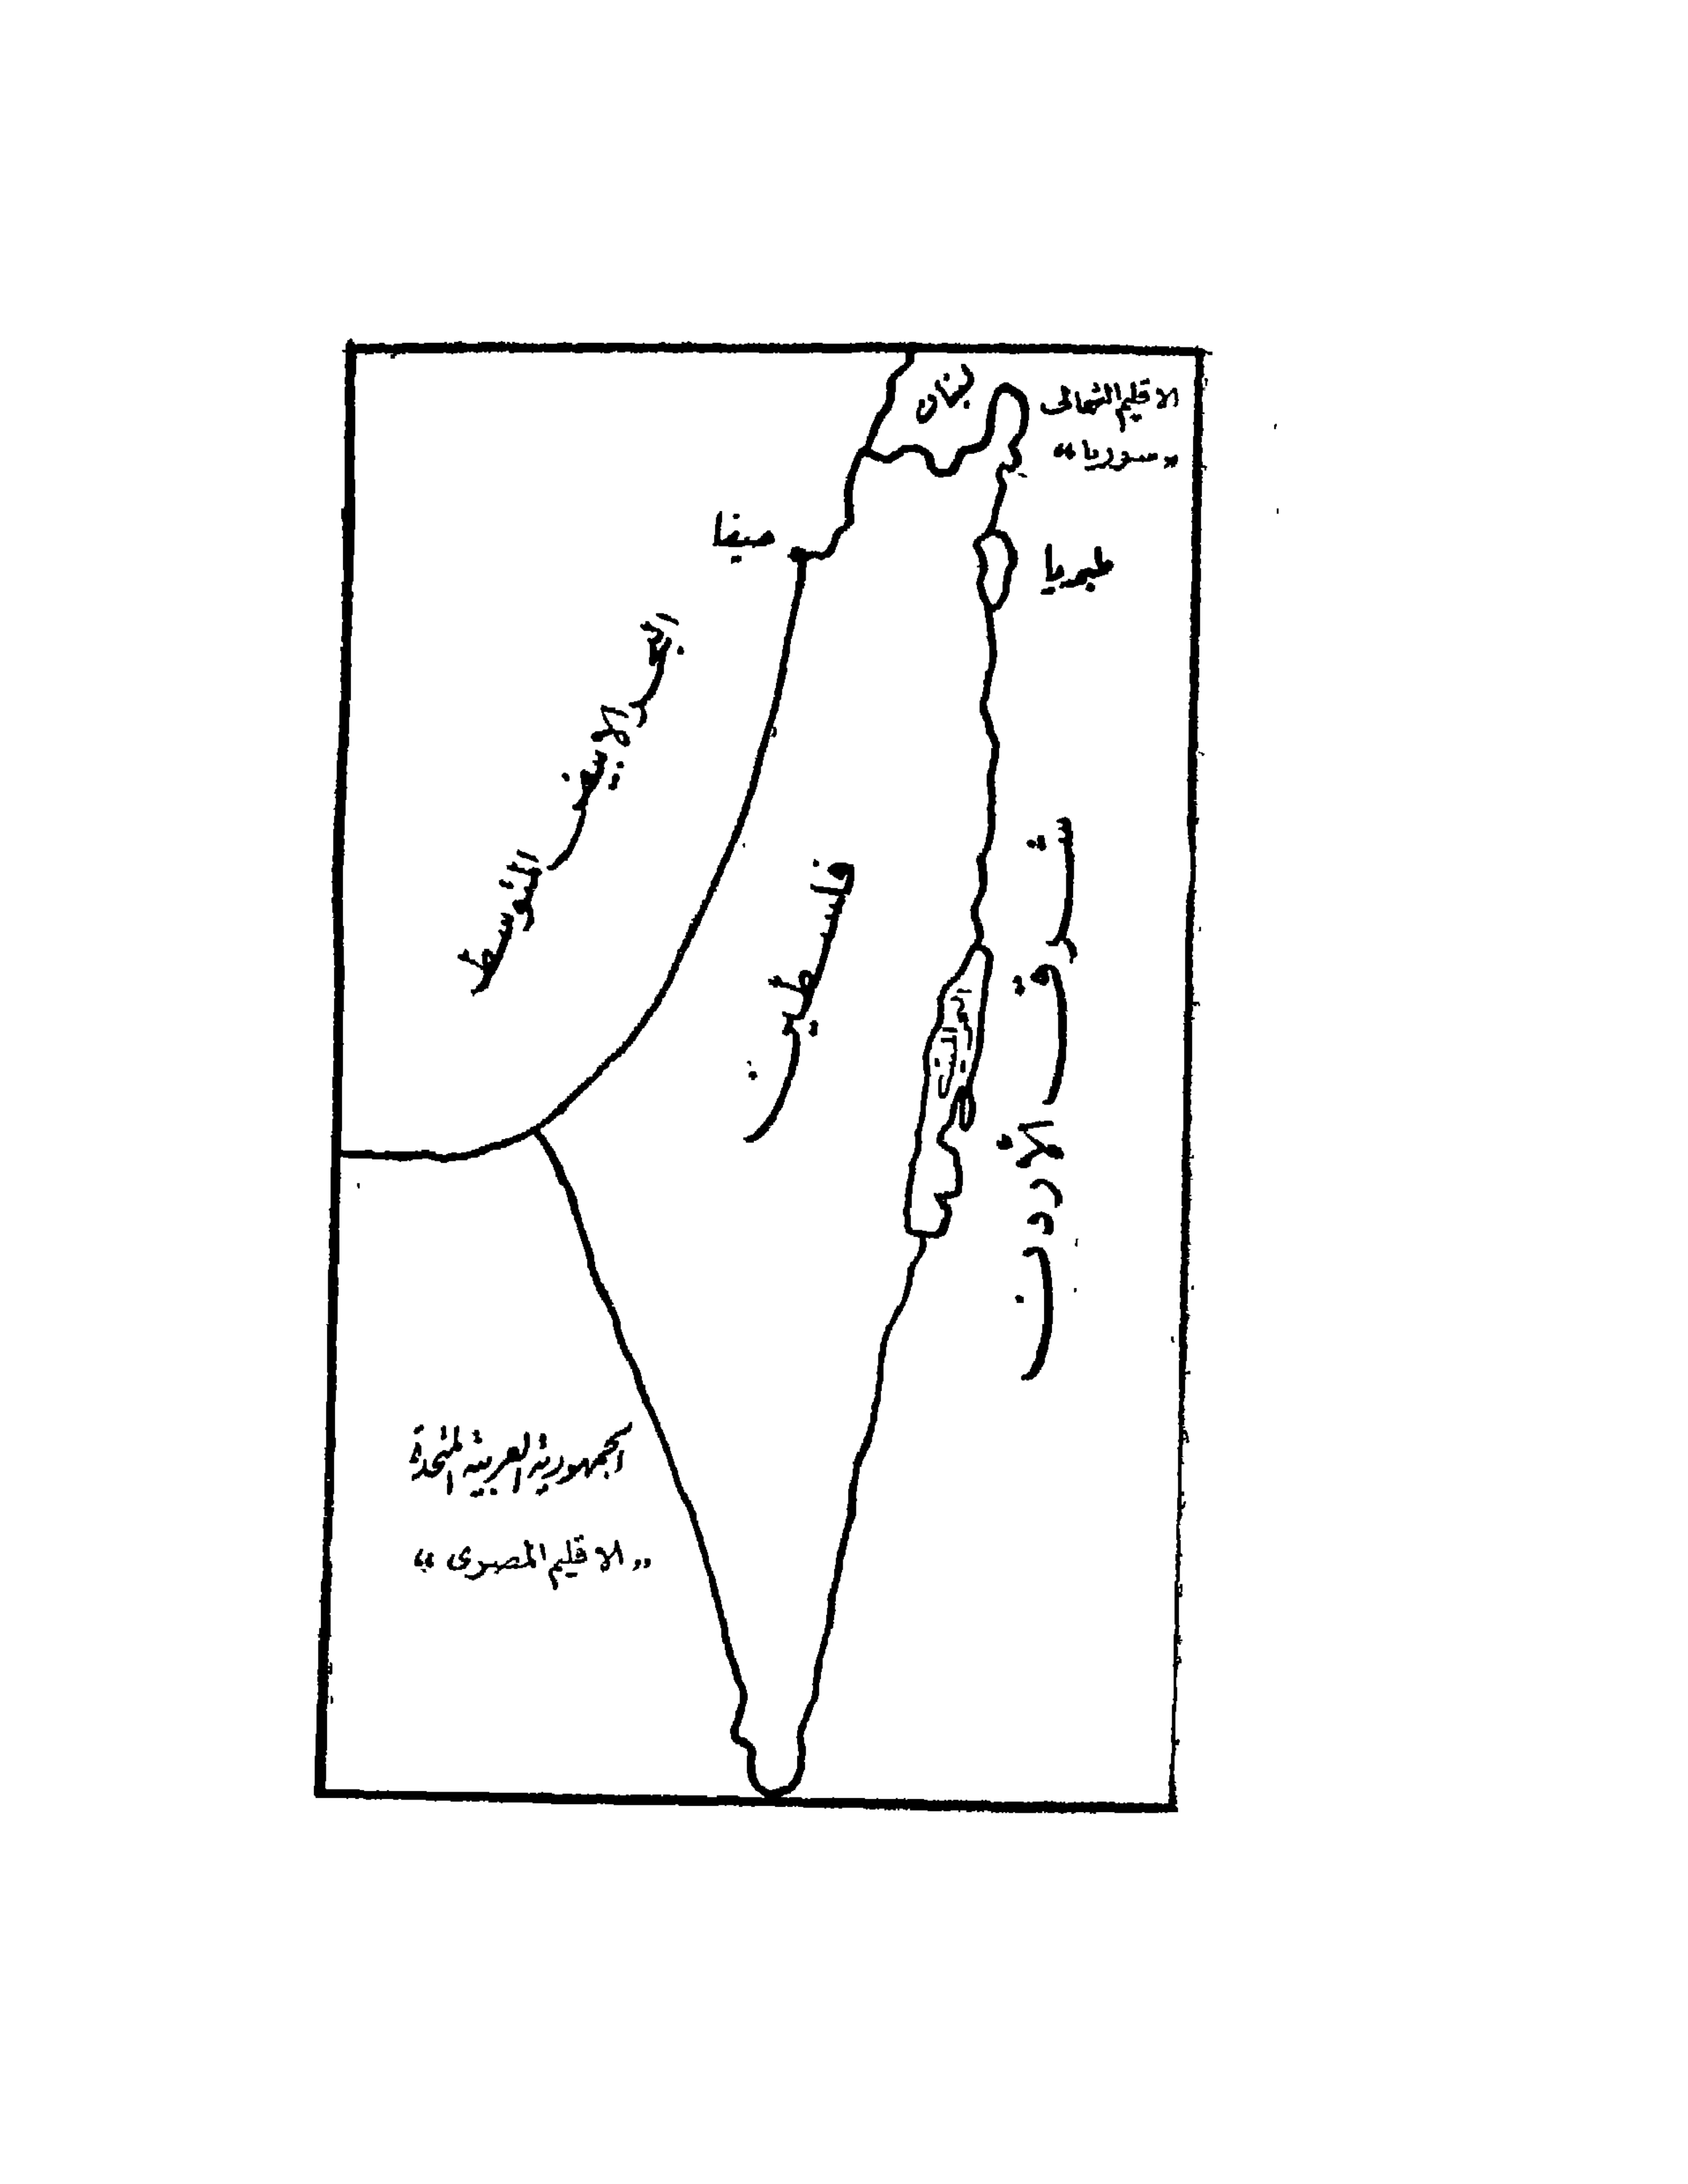 لبنان
الاقليم الشمالى
«سوريا»
حيفا
طبريا
البحر الأبيض المتوسط
فلسطين
شرق الأردن
الجمهورية العربية المتحدة
«الاقليم المصرى»